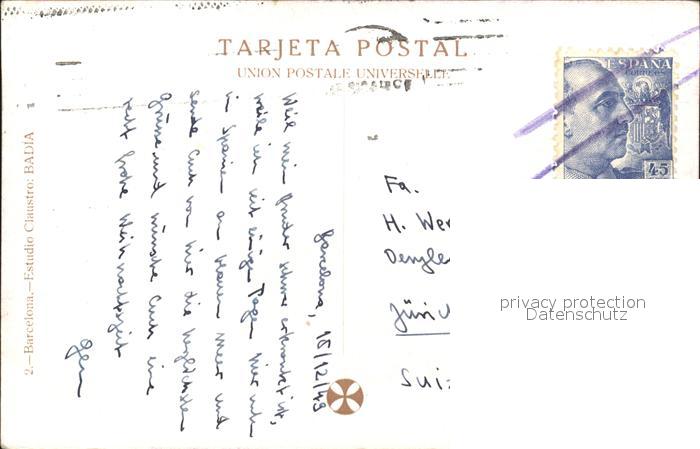 TARJETA POSTAL
UNION POSTALE UNIVERSELLE
ESPAÑA
CORREOS
45
2.—Barcelona.—Estudio Claustro: BADÍA
Barcelona, 18/12/49
Weil mein Bruder schwer erkrankt ist,
weile ich seit einigen Tagen hier unten
in Spanien am blauen Meer und
sende Euch von hier die herzlichsten
Grüsse und wünsche Euch eine
recht frohe Weihnachtszeit
Fa.
H. Wer
Züric
Sui
privacy protection
Datenschutz